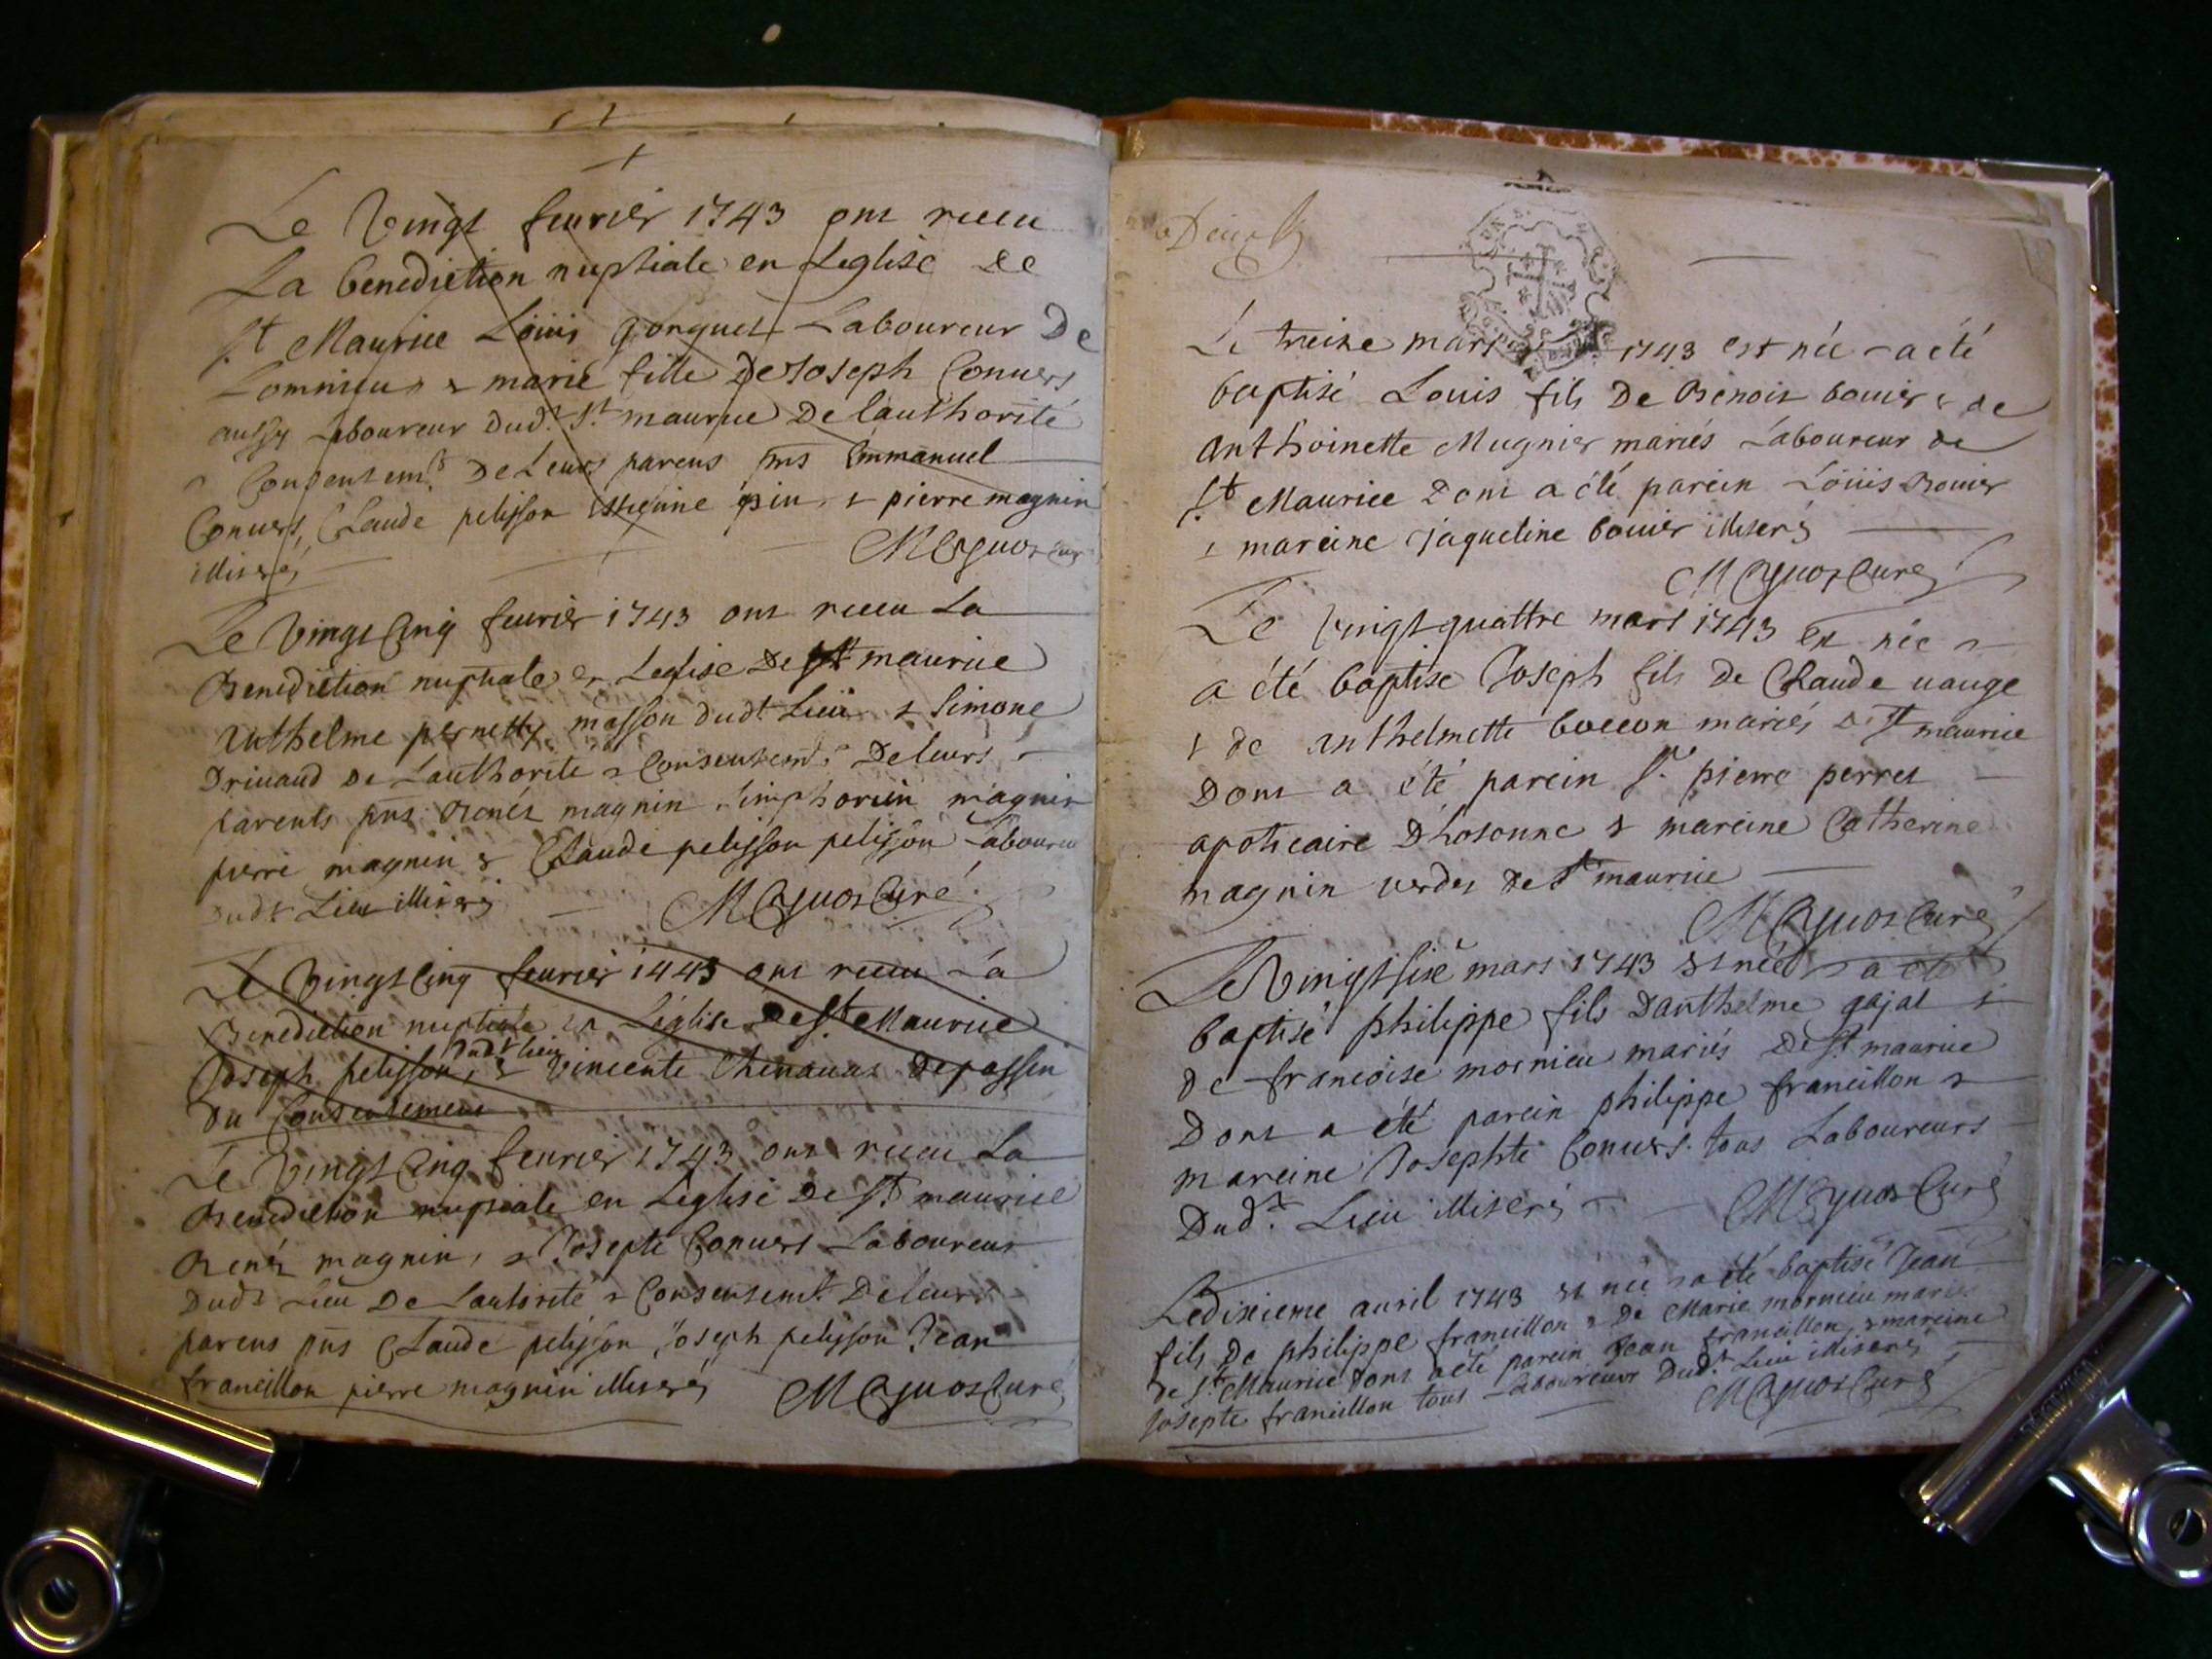 Le Vingt feurier 1743 ont receu
La benediction nuptiale en Leglise De
St Maurice Loüis Gonguet Laboureur De
Lomnieu & marie fille De Joseph Conuers
aussy Laboureur Dudt St maurice De lauthorité
Consentemt De Leurs parens pns Emmanuel
Conuers, Claude pelisson Estienne & pierre magnin
illiserés
Le Vingt Cinq feurier 1743 ont receu La
Benediction nuptiale en Leglise De St maurice
Anthelme pernetty masson dudt Lieu & Simone
Driuaud De Lauthorité & Consentemt De leurs
parents pns Benoit magnin Simphorien magnin
pierre magnin & Claude pelisson pelisson Laboureur
Dudt Lieu illiserés
Curé
Le Vingt Cinq feurier 1743 ont receu La
Benediction nuptiale en Léglise De St Maurice
Dudt Lieu
Joseph pelisson, & Vincente De passin
Du Consentement
Le Vingt Cinq feurier 1743 ont receu La
Benediction nuptiale en Léglise De St maurice
Benoit magnin, & Josepte Conuers Laboureur
Dudt Lieu De Lautorité & Consentemt De leurs
parens pns Claude pelisson Joseph pelisson Jean
francillon pierre magnin illiserés
Curé
Le treize mars 1743 est née & a été
baptisé Louis fils De Benoit bouier & de
anthoinette Mugnier mariés Laboureur de
St Maurice Dont a été parein Loüis Bouier
& mareine Jaqueline bouier illiserés
Curé
Le Vingt quattre mars 1743 est née &
a été baptisé Joseph fils de Claude uauge
& de anthelmette boccon mariés De St maurice
Dont a été parein Sr pierre perret
apoticaire Dhosonne & mareine Catherine
magnin De St maurice
Curé
Le Vingt sixe mars 1743 est née & a été
baptisé philippe fils Danthelme gajat &
De francoise mornieu mariés De St maurice
Dont a été parein philippe francillon &
mareine Josephte Conuers tous Laboureurs
Dudt Lieu illiserés
Curé
Le dixieme auril 1743 est née & a été baptisé Jean
fils De philippe francillon & De Marie mornieu mariés
De St Maurice dont a été parein Jean francillon & mareine
Josepte francillon tous Laboureurs Dudt Lieu illiserés
Curé